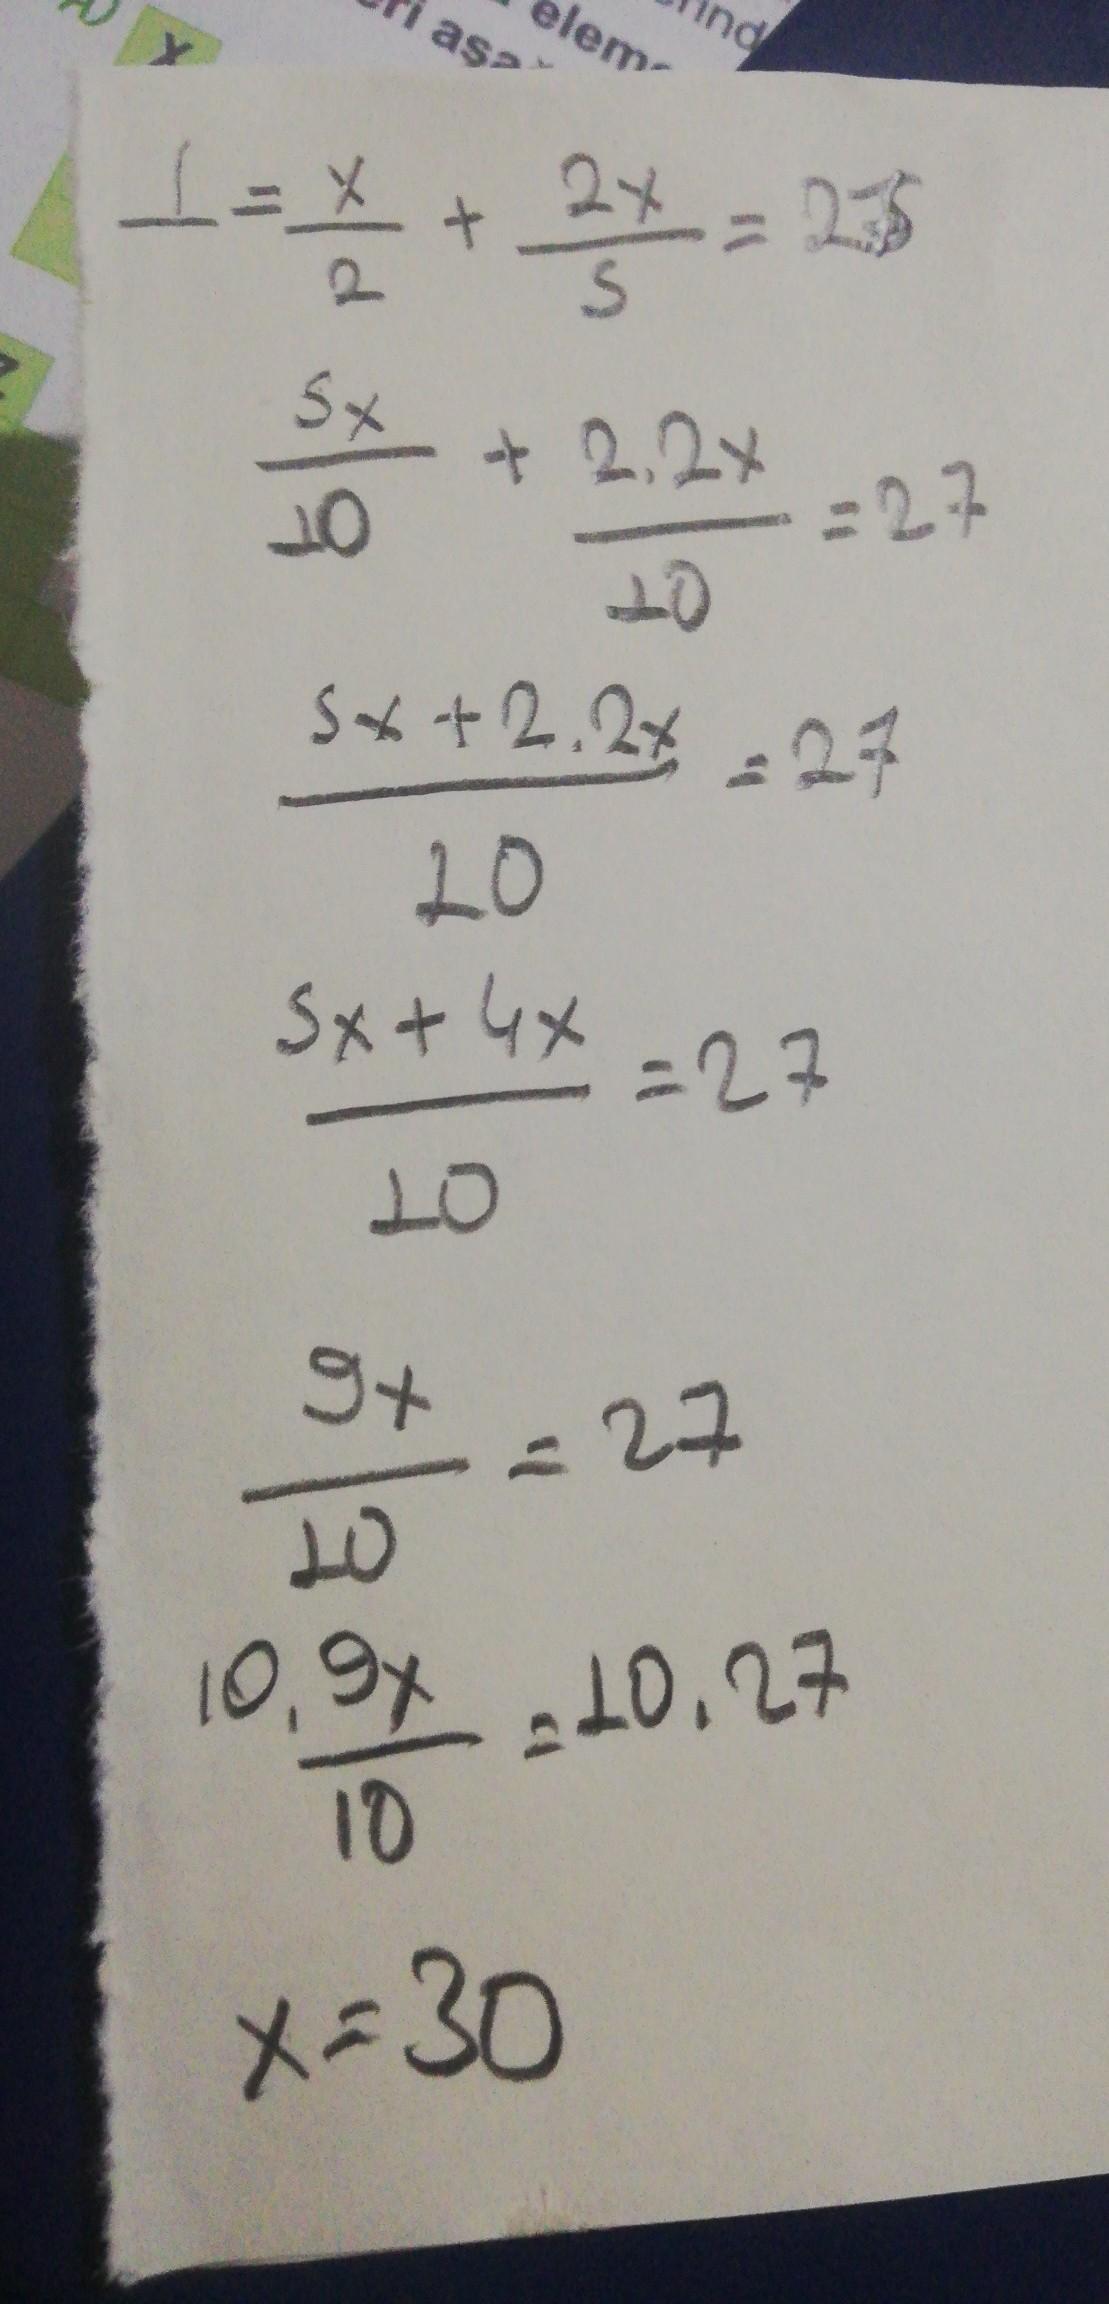 elem
eri aşa
X
1 = x/2 + 2x/5 = 27
5x/10 + 2.2x/10 = 27
5x+2.2x/10 = 27
5x+4x/10 = 27
9x/10 = 27
10.9x/10 = 10.27
x=30